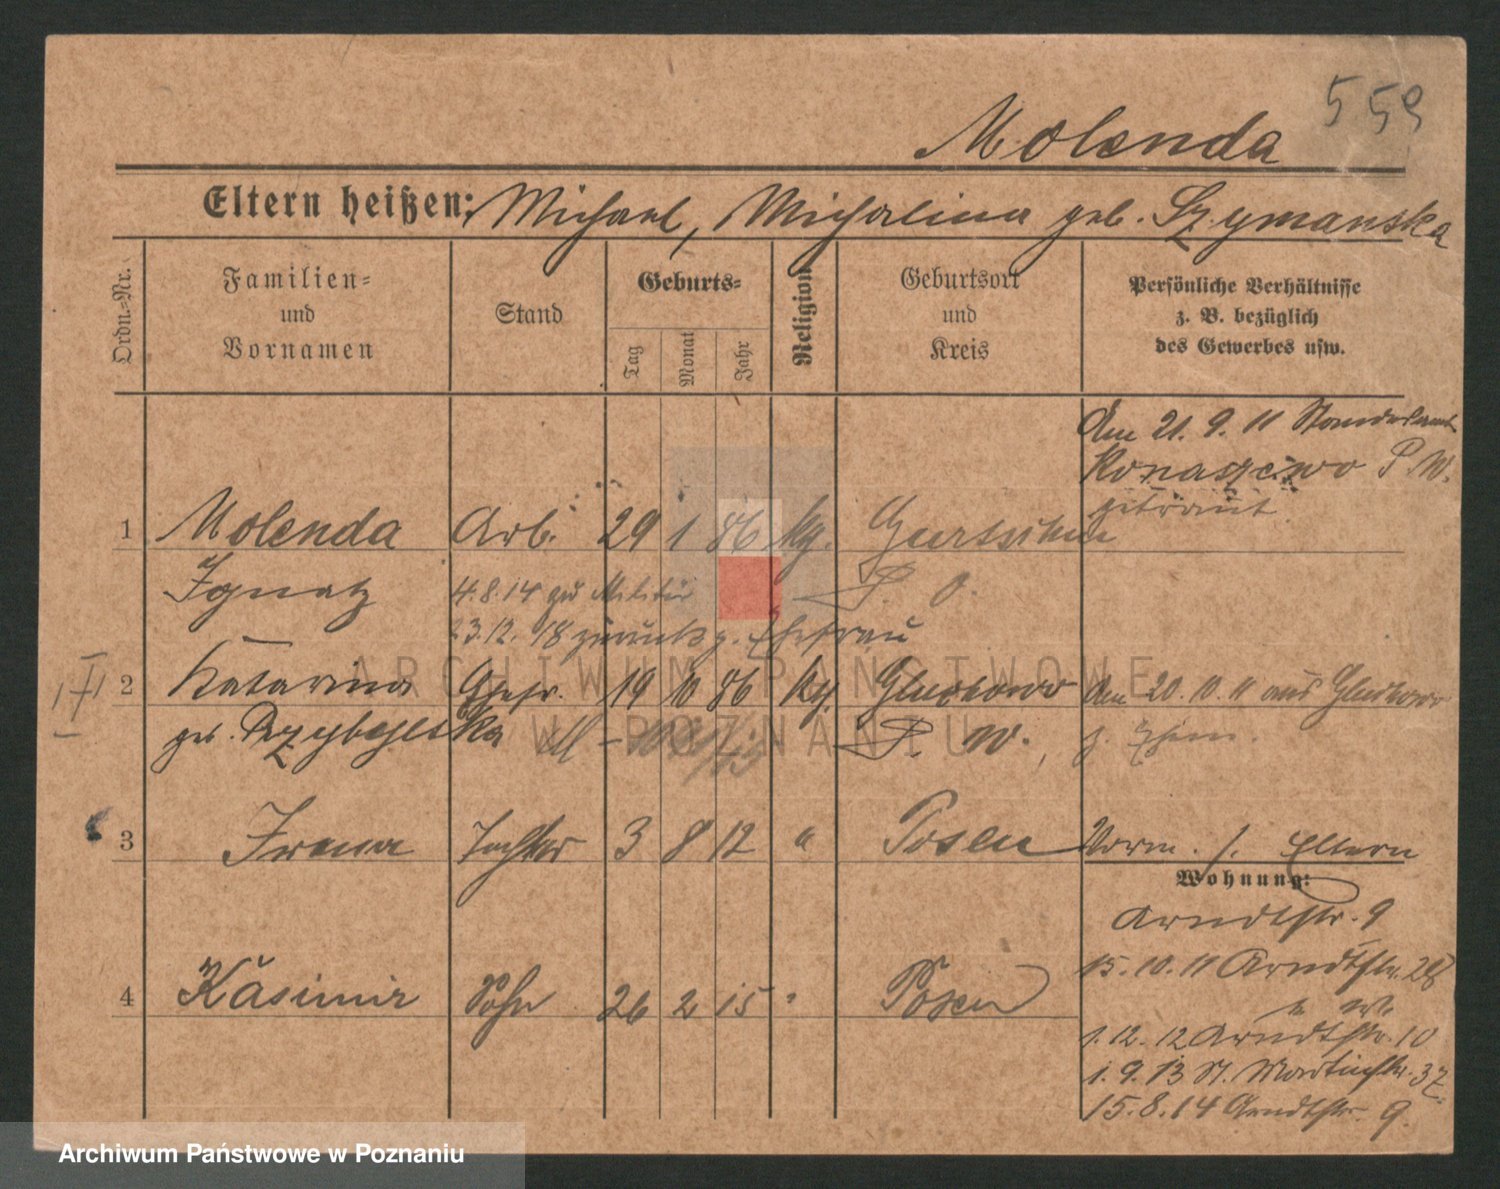 559
Molenda
Eltern heißen: Michael, Michalina geb. Szymanska
Ordn.-Nr.
Familien- und Vornamen
Stand
Geburts-
Tag
Monat
Jahr
Religion
Geburtsort und Kreis
Persönliche Verhältnisse z. B. bezüglich des Gewerbes usw.
Am 21. 9. 11 Standesamt
Konarzewo P. W.
getraut.
1 Molenda Arb. 29 1 86 kg.
Ignatz 4.8.14 zu Militär P. O.
23.12.18 zurück z. Ehefrau
2 Katarina Ehefr. 19 10 86 kg. Gluchowo Am 20.10.11 aus Gluchowo
geb. Przybylska P. W. z. Ehem.
3 Irena Tochter 3 8 12 " Posen Vorm. s. Eltern
Wohnung:
Arndtstr. 9
15.10.11 Arndtstr. 28
4 Kasimir Sohn 26 2 15 " Posen
1.12.12 Arndtstr. 10
1.9.13 St. Martinstr. 37
15.8.14 Arndtstr. 9.
ARCHIWUM PAŃSTWOWE
W POZNANIU
Archiwum Państwowe w Poznaniu